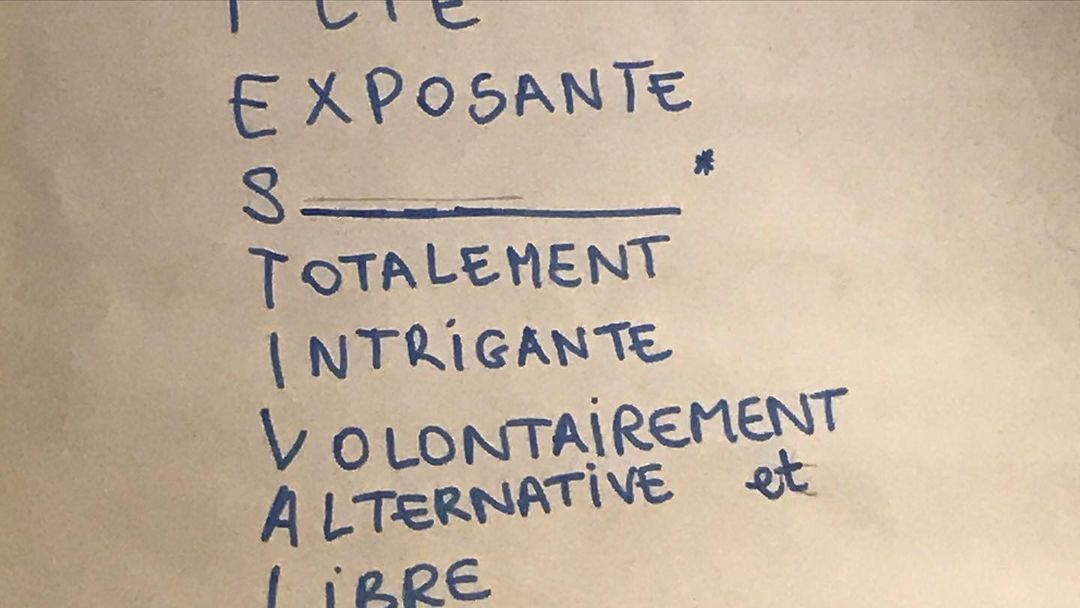 EXPOSANTE
S ________ *
TOTALEMENT
INTRiGANTE
VOLONTAiREMENT
ALTERNATiVE et
LiBRE